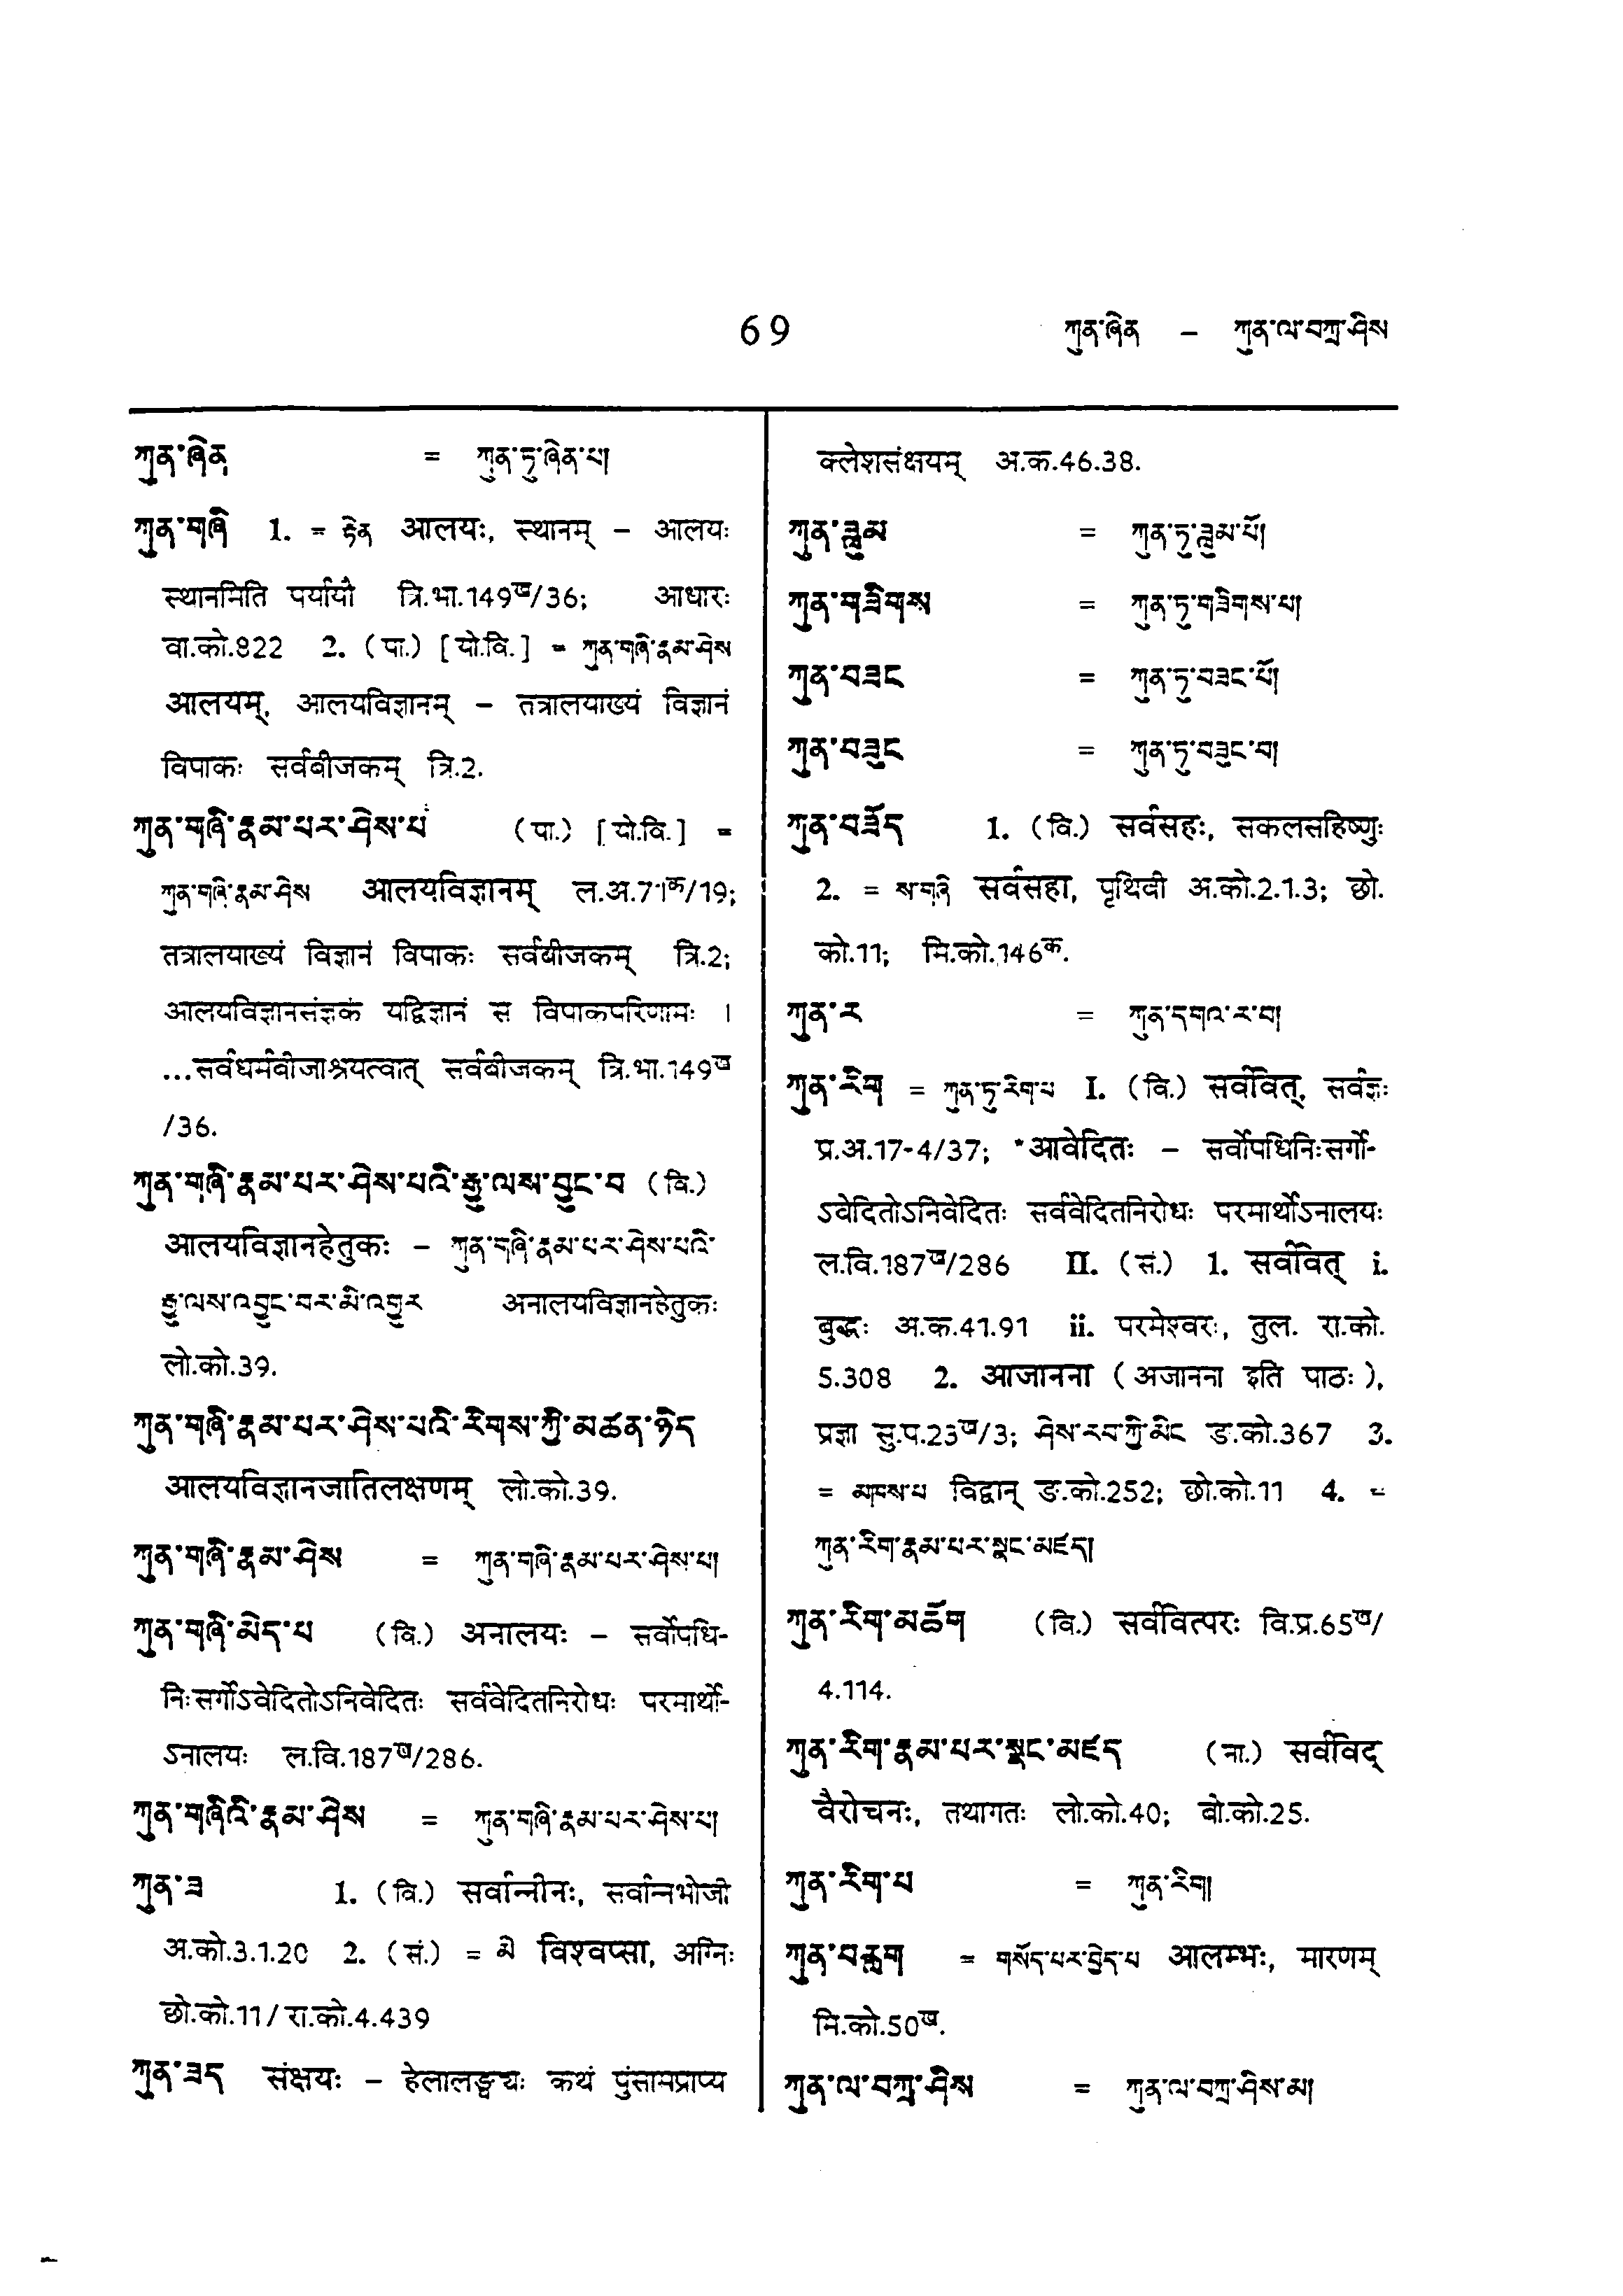 69
ཀུན་ཞེན – ཀུན་ལ་བཀྲ་ཤིས
ཀུན་ཞེན = ཀུན་ཏུ་ཞེན་པ།
ཀུན་གཞི 1. = རྟེན आलयः, स्थानम् – आलयः
स्थानमिति पर्यायौ त्रि.भा.149ख/36; आधारः
वा.को.822 2. (पा.) [यो.वि.] = ཀུན་གཞི་རྣམ་ཤེས
आलयम्, आलयविज्ञानम् – तत्रालयाख्यं विज्ञानं
विपाकः सर्वबीजकम् त्रि.2.
ཀུན་གཞི་རྣམ་པར་ཤེས་པ (पा.) [यो.वि.] =
ཀུན་གཞི་རྣམ་ཤེས आलयविज्ञानम् ल.अ.71क/19;
तत्रालयाख्यं विज्ञानं विपाकः सर्वबीजकम् त्रि.2;
आलयविज्ञानसंज्ञकं यद्विज्ञानं स विपाकपरिणामः ।
...सर्वधर्मबीजाश्रयत्वात् सर्वबीजकम् त्रि.भा.149ख
/36.
ཀུན་གཞི་རྣམ་པར་ཤེས་པའི་རྒྱུ་ལས་བྱུང་བ (वि.)
आलयविज्ञानहेतुकः – ཀུན་གཞི་རྣམ་པར་ཤེས་པའི་
རྒྱུ་ལས་འབྱུང་བར་མི་འགྱུར अनालयविज्ञानहेतुकः
लो.को.39.
ཀུན་གཞི་རྣམ་པར་ཤེས་པའི་རིགས་ཀྱི་མཚན་ཉིད
आलयविज्ञानजातिलक्षणम् लो.को.39.
ཀུན་གཞི་རྣམ་ཤེས = ཀུན་གཞི་རྣམ་པར་ཤེས་པ།
ཀུན་གཞི་མེད་པ (वि.) अनालयः – सर्वोपधि-
निःसर्गोऽवेदितोऽनिवेदितः सर्ववेदितनिरोधः परमार्थो-
ऽनालयः ल.वि.187ख/286.
ཀུན་གཞིའི་རྣམ་ཤེས = ཀུན་གཞི་རྣམ་པར་ཤེས་པ།
ཀུན་ཟ 1. (वि.) सर्वान्नीनः, सर्वान्नभोजी
अ.को.3.1.20 2. (सं.) = མེ विश्वप्सा, अग्निः
छो.को.11/रा.को.4.439
ཀུན་ཟད संक्षयः – हेलालङ्घ्यः कथं पुंसामप्राप्य
क्लेशसंक्षयम् अ.क.46.38.
ཀུན་ཟླུམ = ཀུན་ཏུ་ཟླུམ་པོ།
ཀུན་གཟིགས = ཀུན་ཏུ་གཟིགས་པ།
ཀུན་བཟང = ཀུན་ཏུ་བཟང་པོ།
ཀུན་བཟུང = ཀུན་ཏུ་བཟུང་བ།
ཀུན་བཟོད 1. (वि.) सर्वसहः, सकलसहिष्णुः
2. = ས་གཞི सर्वसहा, पृथिवी अ.को.2.1.3; छो.
को.11; मि.को.146क.
ཀུན་ར = ཀུན་དགའ་ར་བ།
ཀུན་རིག = ཀུན་ཏུ་རིག་པ I. (वि.) सर्ववित्, सर्वज्ञः
प्र.अ.17-4/37; *आवेदितः – सर्वोपधिनिःसर्गो-
ऽवेदितोऽनिवेदितः सर्ववेदितनिरोधः परमार्थोऽनालयः
ल.वि.187ख/286 II. (सं.) 1. सर्ववित् i.
बुद्धः अ.क.41.91 ii. परमेश्वरः, तुल. रा.को.
5.308 2. आजानना (अजानना इति पाठः),
प्रज्ञा सु.प.23ख/3; ཤེས་རབ་ཀྱི་མིང ङ.को.367 3.
= མཁས་པ विद्वान् ङ.को.252; छो.को.11 4. =
ཀུན་རིག་རྣམ་པར་སྣང་མཛད།
ཀུན་རིག་མཆོག (वि.) सर्ववित्परः वि.प्र.65ख/
4.114.
ཀུན་རིག་རྣམ་པར་སྣང་མཛད (ना.) सर्वविद्
वैरोचनः, तथागतः लो.को.40; बो.को.25.
ཀུན་རིག་པ = ཀུན་རིག།
ཀུན་བརླག = གསོད་པར་བྱེད་པ आलम्भः, मारणम्
मि.को.50ख.
ཀུན་ལ་བཀྲ་ཤིས = ཀུན་ལ་བཀྲ་ཤིས་མ།